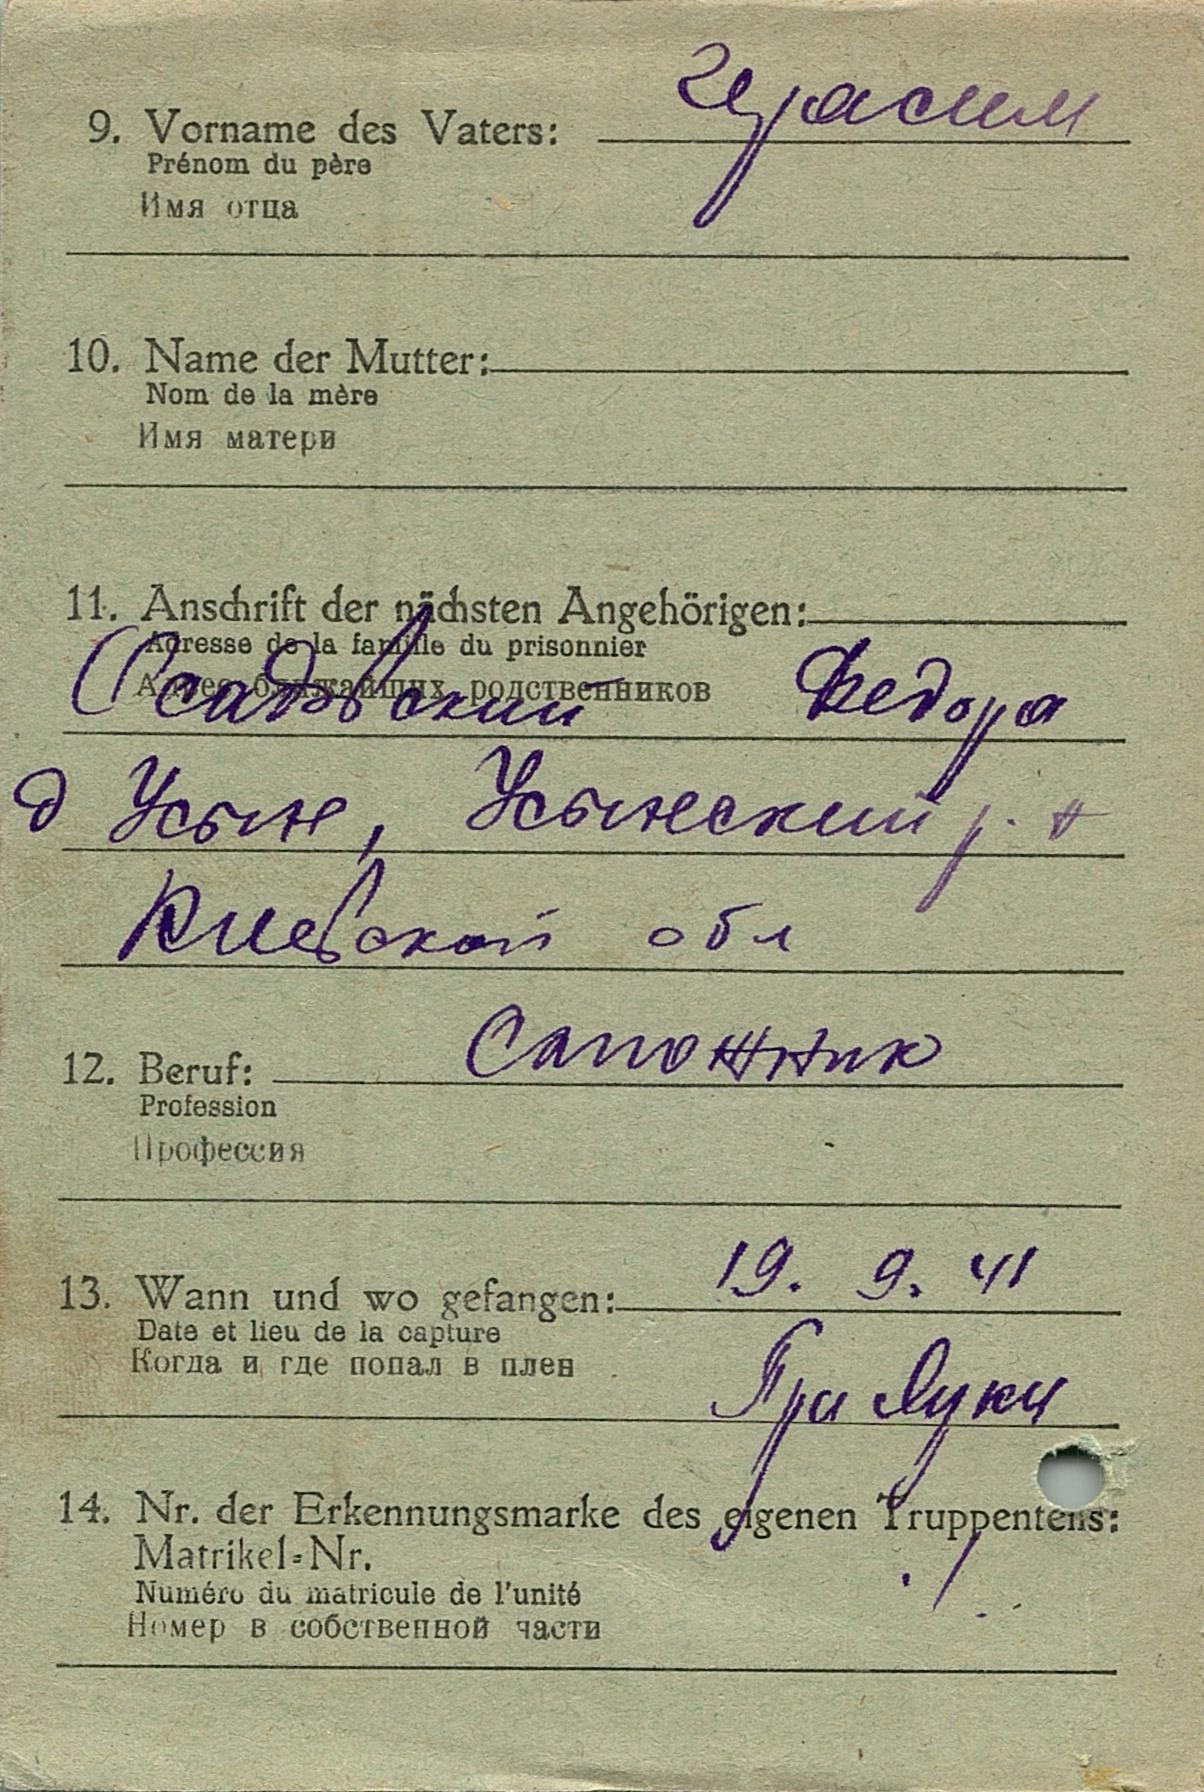 9. Vorname des Vaters: Герасим
Prénom du père
Имя отца
10. Name der Mutter:
Nom de la mère
Имя матери
11. Anschrift der nächsten Angehörigen:
Adresse de la famille du prisonnier
Адрес ближайших родственников
Осадовский Федора
д Усын, Усынский р. н
Киевской обл
12. Beruf: Сапожник
Profession
Профессия
13. Wann und wo gefangen: 19. 9. 41
Date et lieu de la capture
Когда и где попал в плен
Прилуки
14. Nr. der Erkennungsmarke des eigenen Truppenteils:
Matrikel-Nr.
Numéro du matricule de l'unité
Номер в собственной части